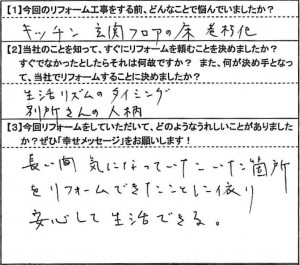 【1】今回のリフォーム工事をする前、どんなことで悩んでいましたか？
キッチン 玄関フロアの床 老朽化
【2】当社のことを知って、すぐにリフォームを頼むことを決めましたか？
すぐでなかったとしたらそれは何故ですか？ また、何が決め手となっ
て、当社でリフォームすることに決めましたか？
生活リズムのタイミング
別所さんの人柄
【3】今回リフォームをしていただいて、どのようなうれしいことがありました
か？ぜひ「幸せメッセージ」をお願いします！
長い間 気になっていた 箇所
をリフォームできたことに依り
安心して生活できる。